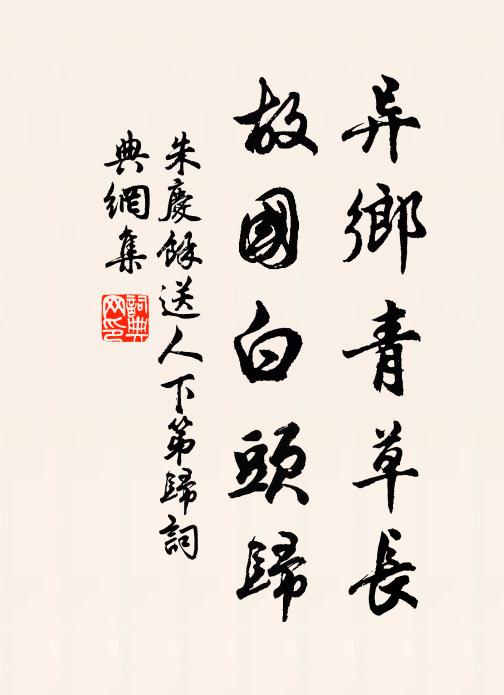 异鄉青草長
故國白頭歸
朱慶餘送人下第歸詞
典網集
詞典
网印